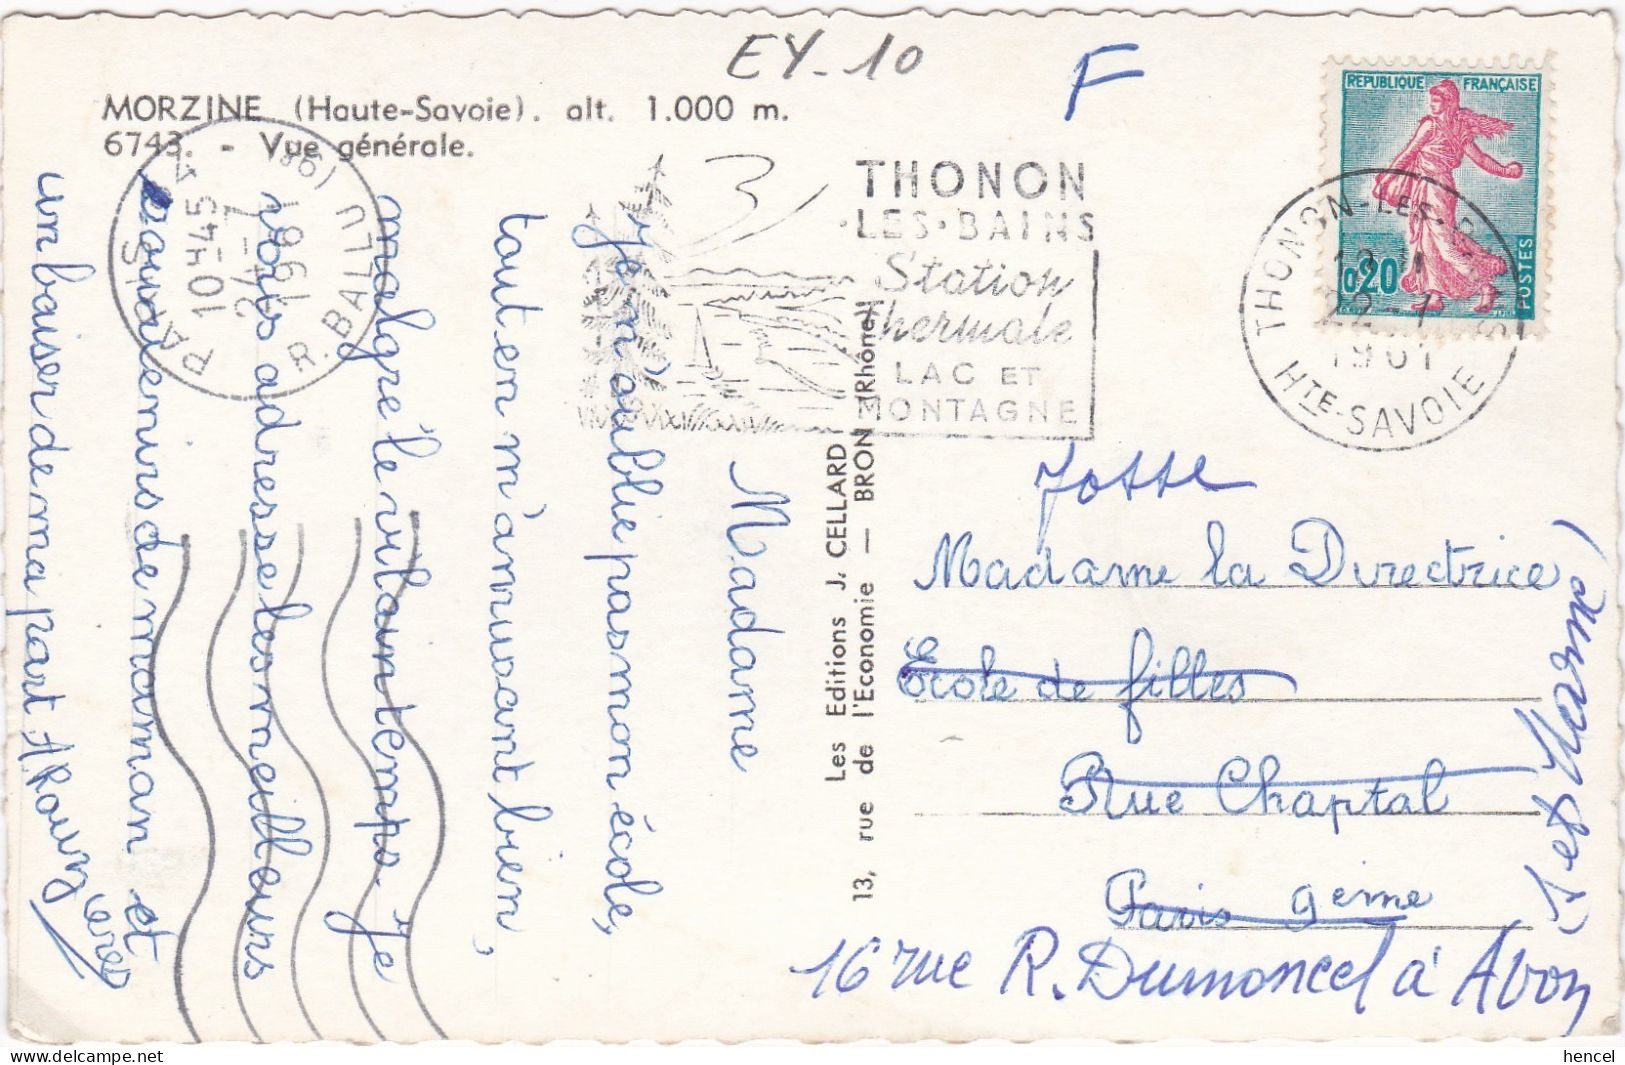 EY-10
F
MORZINE (Haute-Savoie). alt. 1.000 m.
6743. - Vue générale.
PARIS
10H45
24-7
1961
R. BALLU
THONON
·LES·BAINS
Station
Thermale
LAC ET
MONTAGNE
REPUBLIQUE FRANÇAISE
0,20
POSTES
THONON-LES-BAINS
22-7
1961
HTE-SAVOIE
Madame
Je n'oublie pas mon école,
tout en m'amusant bien,
malgré le vilain temps. Je
vous adresse les meilleurs
souvenirs de maman et
un baiser de ma part
Les Editions J. CELLARD
13, rue de l'Economie — BRON (Rhône)
Josse
Madame la Directrice
Ecole de filles
Rue Chaptal
Paris 9eme
16 rue R. Dumoncel à Avon
(S et Marne)
hencel